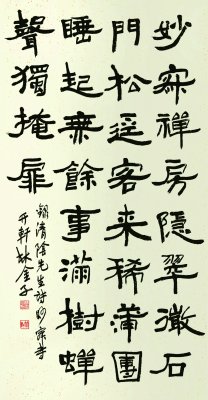 妙寂禪房隱翠微石
門松逕客来稀蒲團
睡起無餘事滿樹蟬
聲獨掩扉
錄清陰先生詩妙寂寺
軒林金子